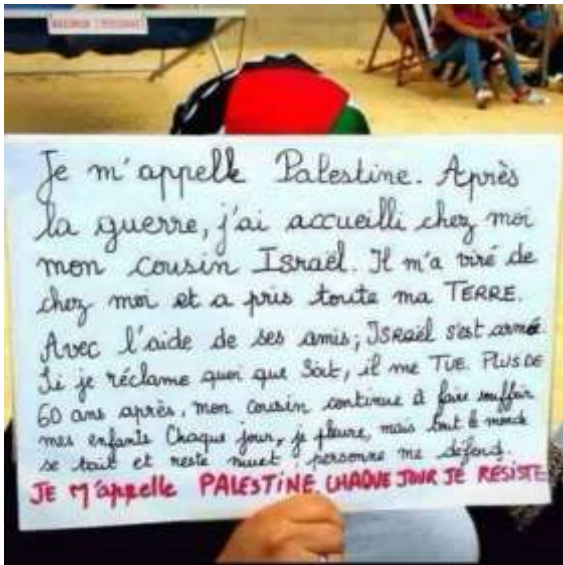 MAXIMUM 2 PERSONNES
Je m'appelle Palestine. Après
la guerre, j'ai accueilli chez moi
mon cousin Israël. Il m'a viré de
chez moi et a pris toute ma TERRE.
Avec l'aide de ses amis; ISRaël s'est armée
Si je réclame quoi que Soit, il me TUE. PLUS DE
60 ans après, mon cousin continue à faire souffrir
mes enfants Chaque jour, je pleure, mais tout le monde
se tait et reste muet, personne me défend.
JE M'appelle PALESTINE. CHAQUE JOUR JE RESISTE